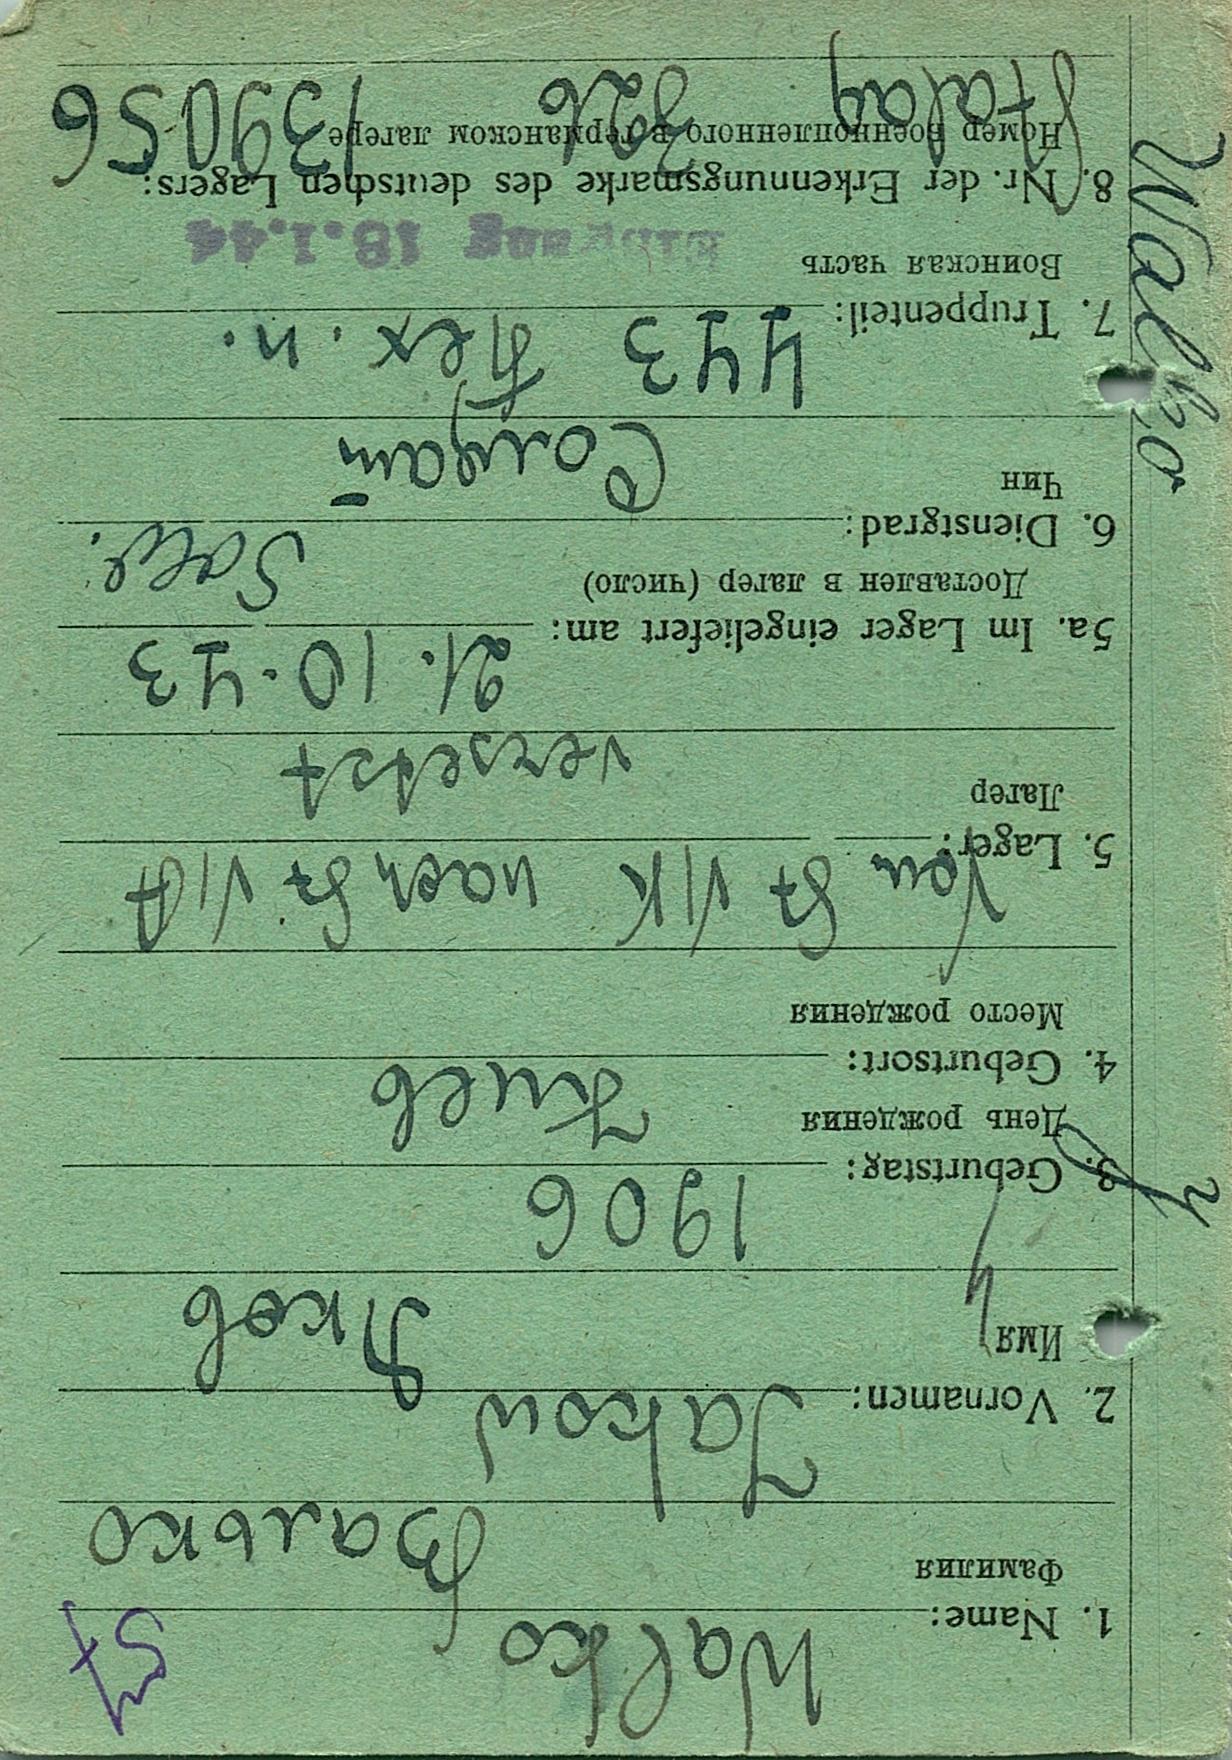 Walko
1. Name: Walko
Фамилия Валько
2. Vornamen: Jakow
Имя Яков
3. Geburtstag: 1906
День рождения
4. Geburtsort: Киев
Место рождения
5. Lager: Von St VI/K nach St. VI/A
Лагер versetzt
5a. Im Lager eingeliefert am: 21.10.43
Доставлен в лагер (число)
6. Dienstgrad: Sold.
Чин Солдат
7. Truppenteil: 443 п.
Воинская часть
18.1.44
8. Nr. der Erkennungsmarke des deutschen Lagers:
Номер военнопленного в германском лагере
Stalag 326 139056